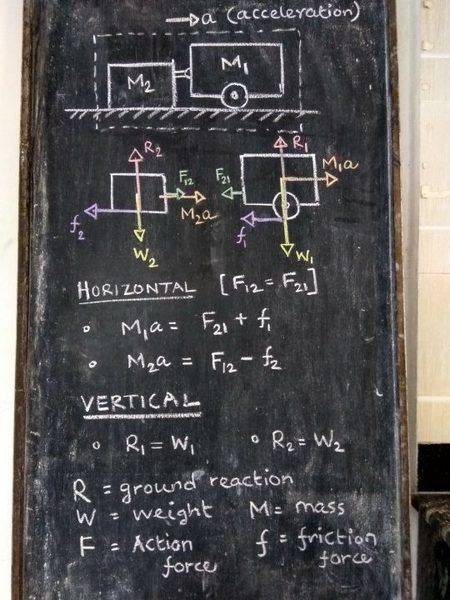 → a (acceleration)
M₂ M₁
R₂ R₁
F₁₂ F₂₁ M₁a
M₂a
f₂ f₁
W₂ W₁
HORIZONTAL [F₁₂ = F₂₁]
◦ M₁a = F₂₁ + f₁
◦ M₂a = F₁₂ − f₂
VERTICAL
◦ R₁ = W₁ ◦ R₂ = W₂
R = ground reaction
W = weight M = mass
F = Action force
f = friction force